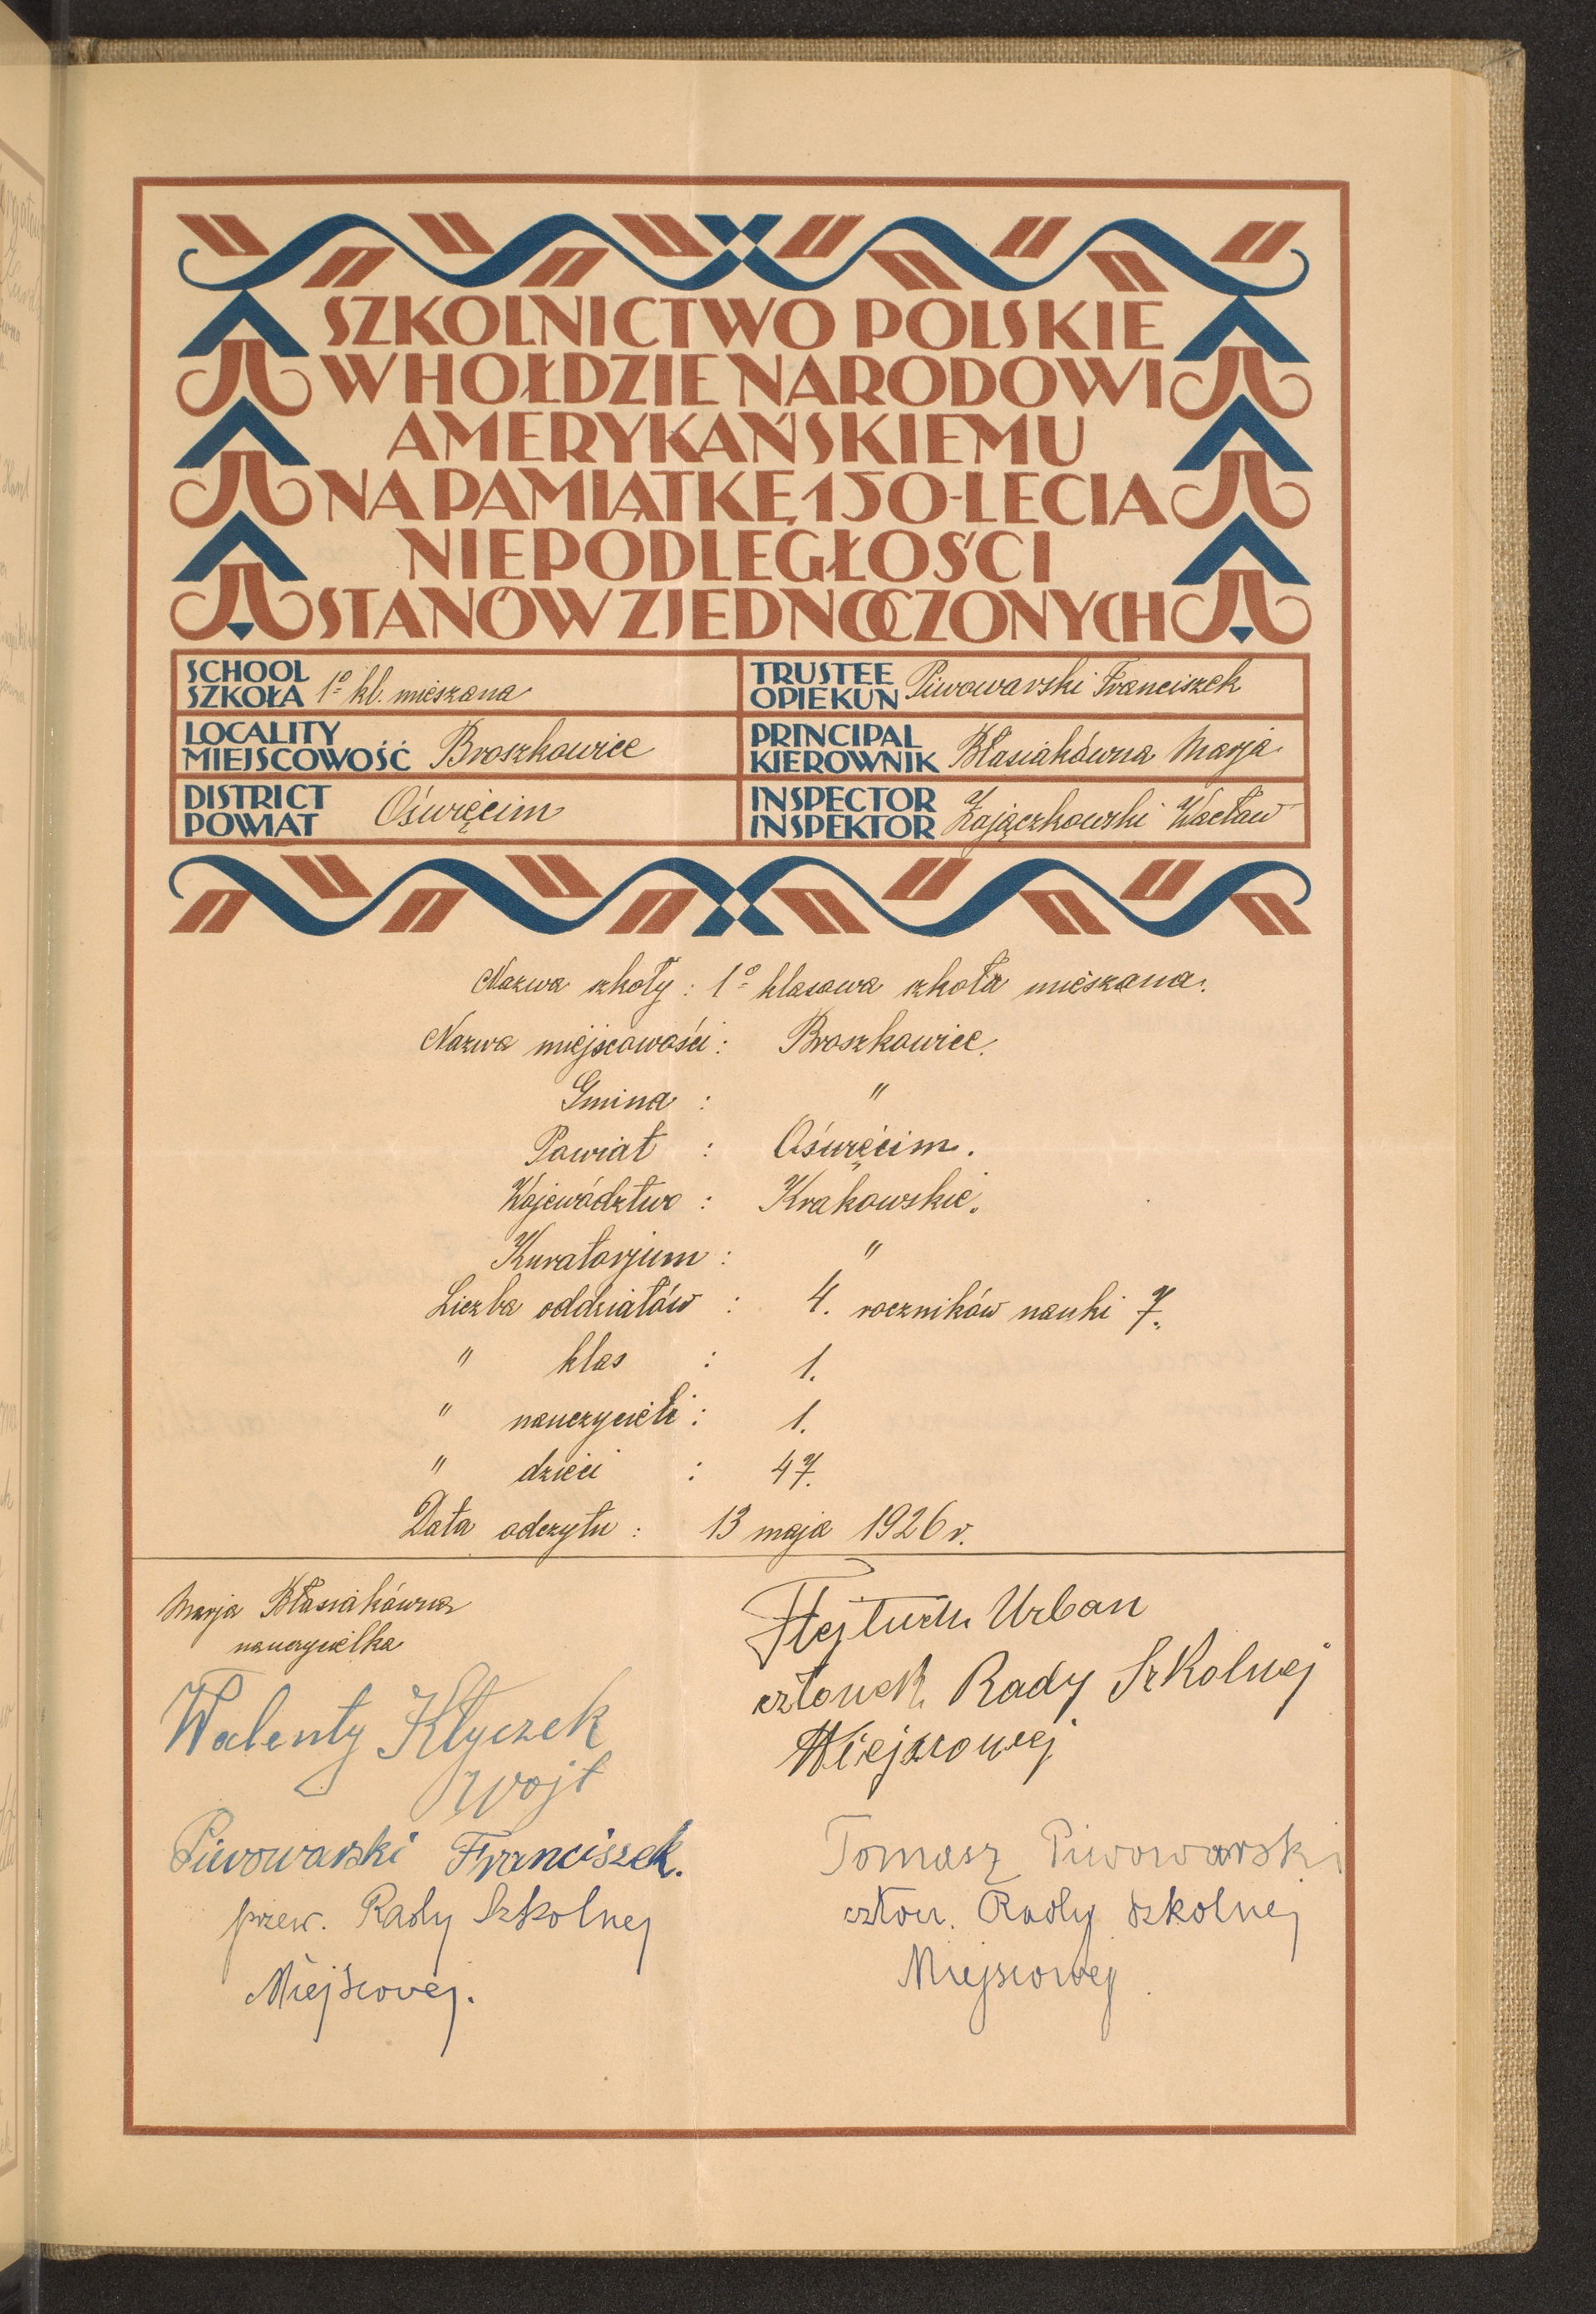 SZKOLNICTWO POLSKIE
W HOŁDZIE NARODOWI
AMERYKAŃSKIEMU
NA PAMIĄTKĘ 150-LECIA
NIEPODLEGŁOŚCI
STANÓW ZJEDNOCZONYCH
SCHOOL
SZKOŁA 1º kl. mieszana
TRUSTEE
OPIEKUN Piwowarski Franciszek
LOCALITY
MIEJSCOWOŚĆ Broszkowice
PRINCIPAL
KIEROWNIK Błasiakówna Marja
DISTRICT
POWIAT Oświęcim
INSPECTOR
INSPEKTOR Zajączkowski Wacław
Nazwa szkoły : 1º klasowa szkoła mieszana.
Nazwa miejscowości : Broszkowice.
Gmina : "
Powiat : Oświęcim.
Województwo : Krakowskie.
Kuratorjum : "
Liczba oddziałów : 4. roczników nauki 7.
" klas : 1.
" nauczycieli : 1.
" dzieci : 47.
Data odczytu : 13 maja 1926 r.
Marja Błasiakówna
nauczycielka
Walenty Kłyczek
wojt
Piwowarski Franciszek.
przew. Rady Szkolnej
Miejscovej.
Urban
członek Rady Szkolnej
Miejscowej
Tomasz Piwowarski
człon. Rady Szkolnej
Miejscowej